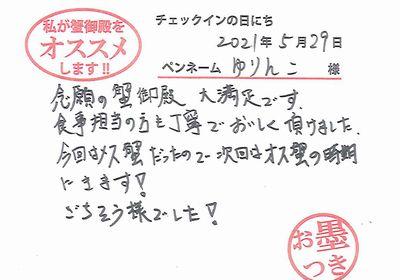 私が蟹御殿を
オススメ
します!!
チェックインの日にち
2021年5月29日
ペンネーム ゆりんこ 様
念願の蟹御殿 大満足です。
食事担当の方も丁寧でおいしく頂けました。
今回はメス蟹だったので次回はオス蟹の時期
にきます!
ごちそう様でした!
お墨つき